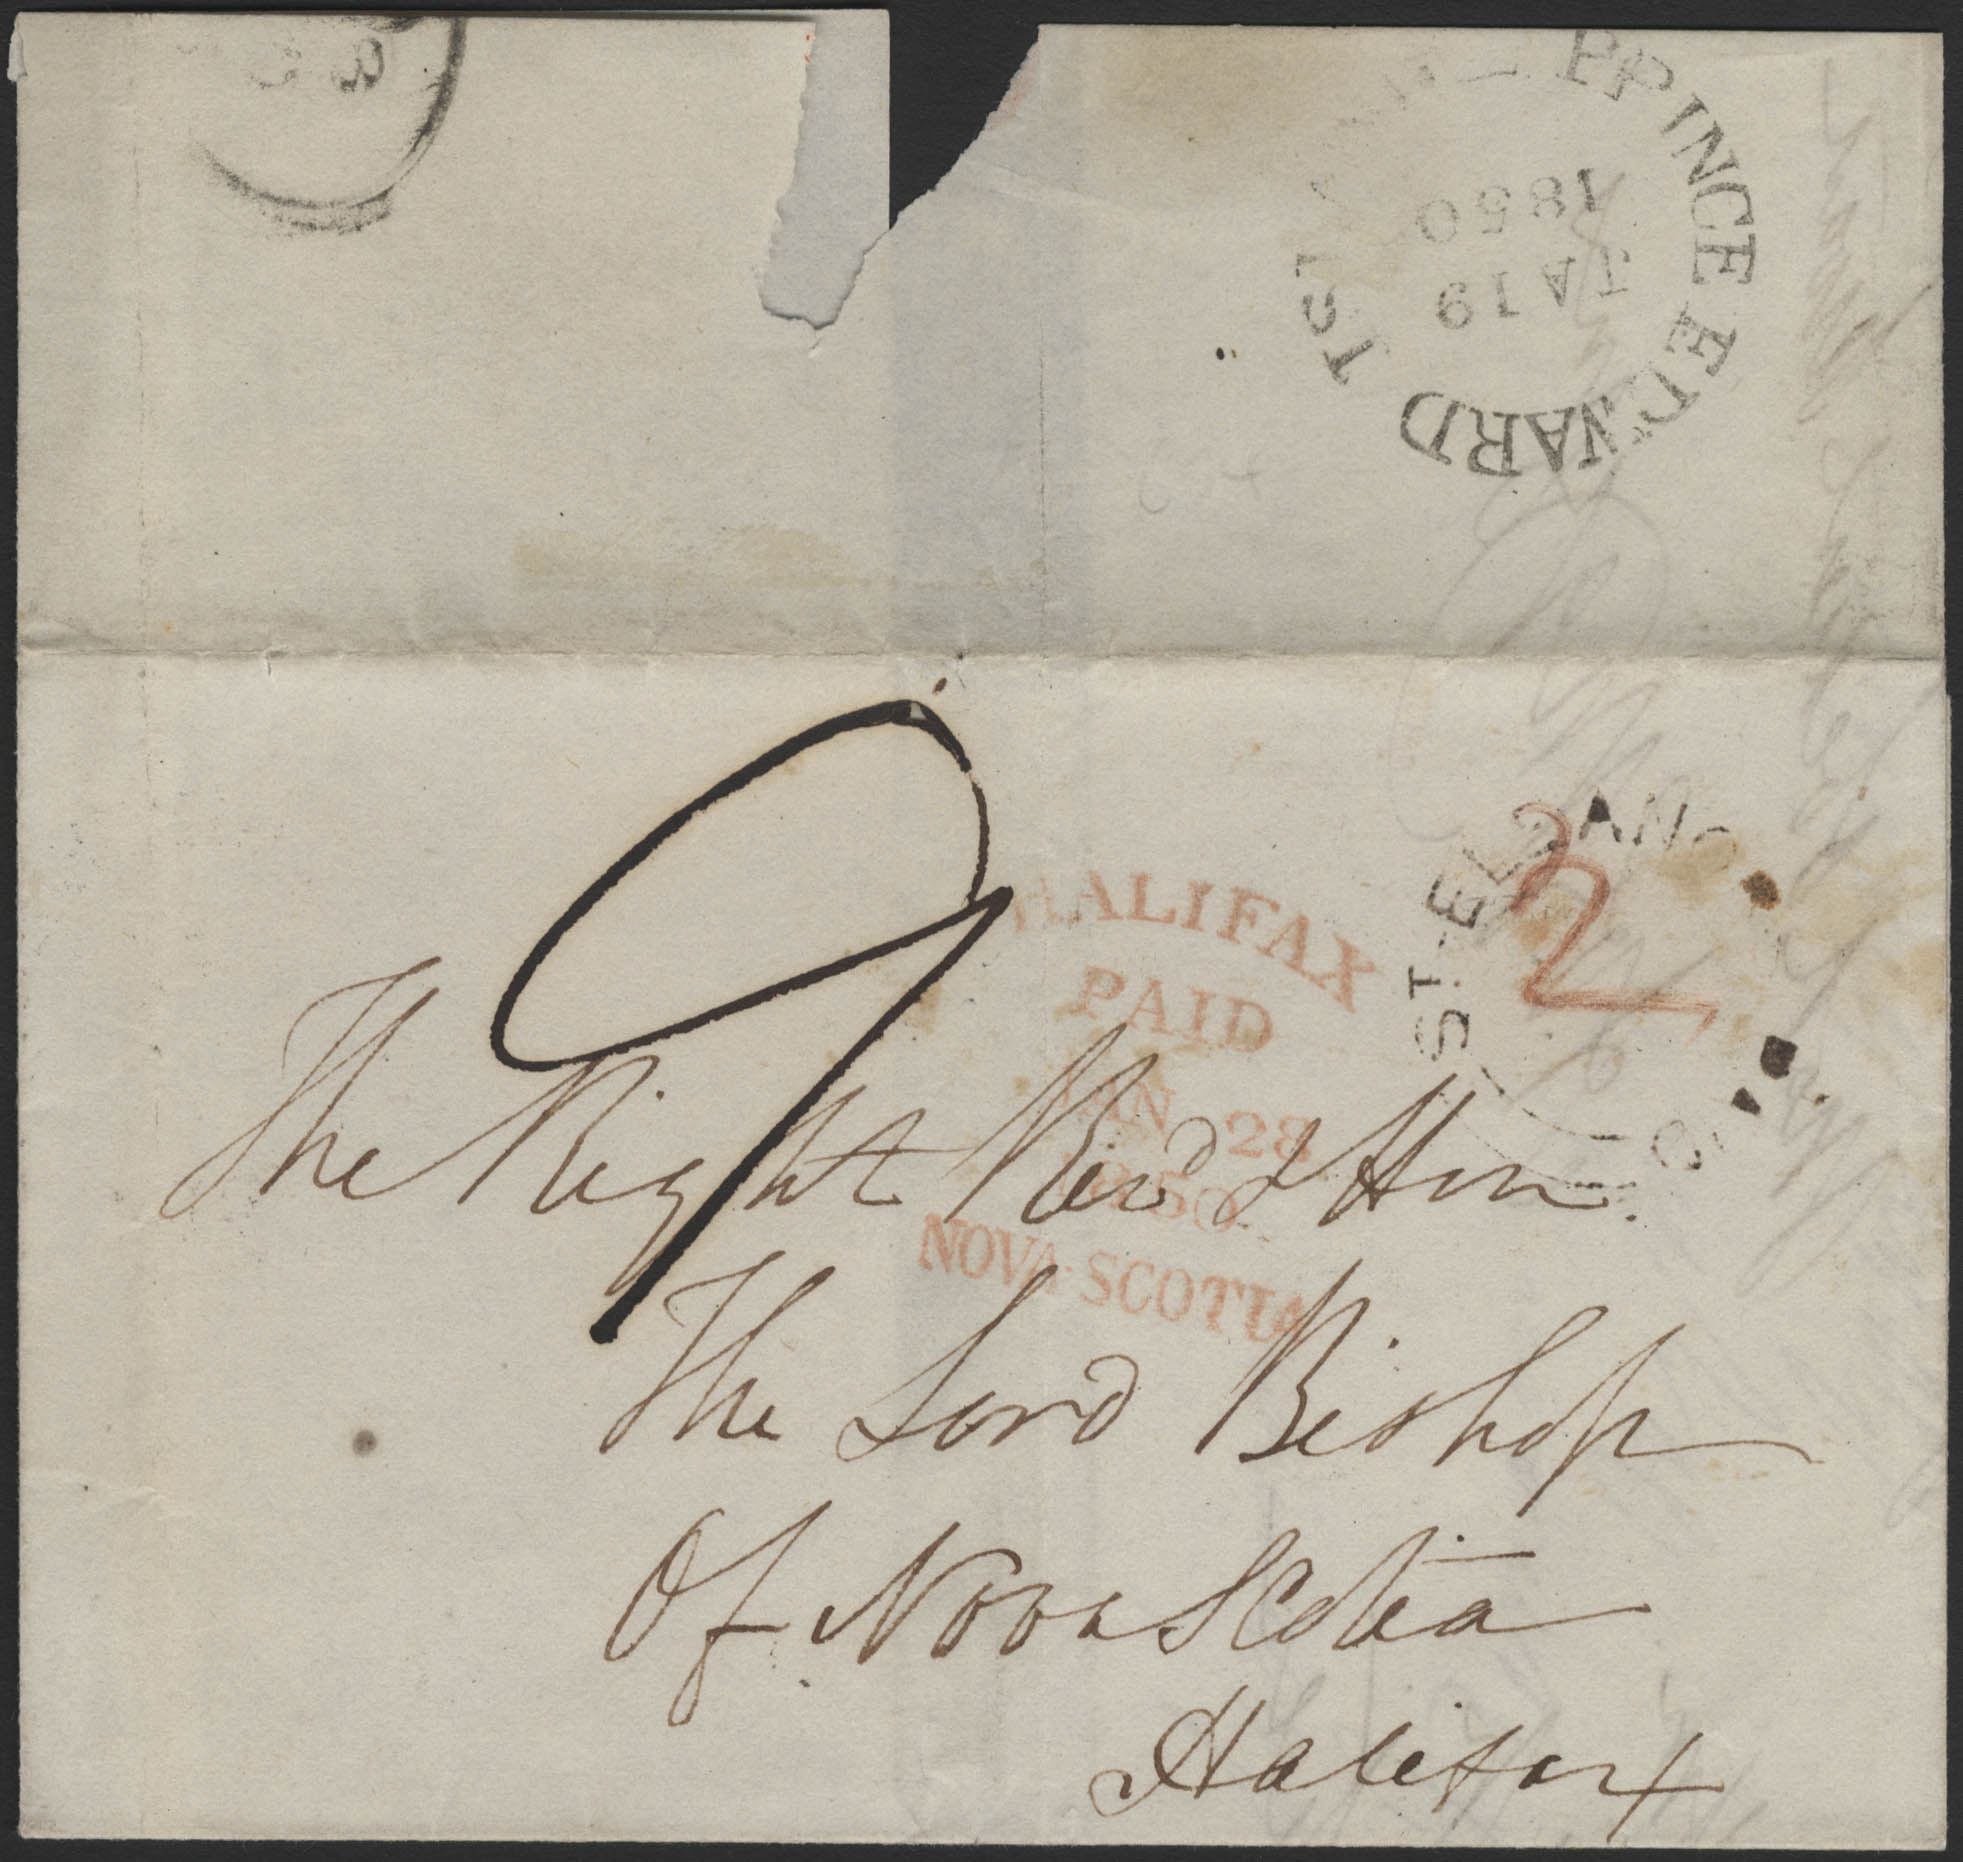 PRINCE EDWARD ISLAND
JA 19
1850
9
2
ST. ELEANORS
HALIFAX
PAID
JAN 28
1850
NOVA-SCOTIA
The Right Revd & Hon.
The Lord Bishop
Of Nova Scotia
Halifax